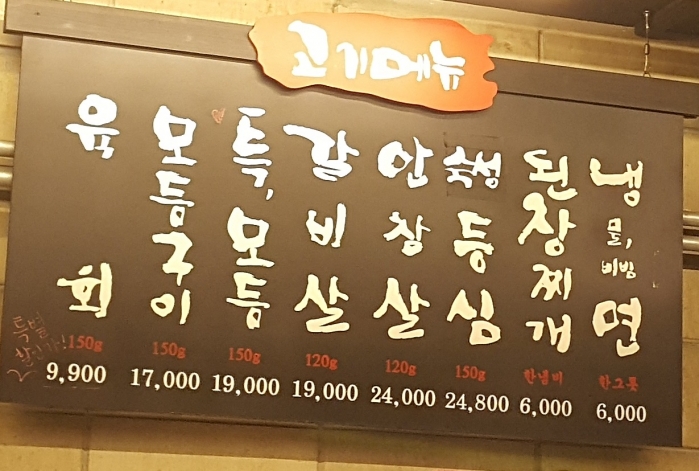 고기메뉴
육회
특별할인가!
150g
9,900
모듬구이
150g
17,000
특,모듬
150g
19,000
갈비살
120g
19,000
안창살
120g
24,000
숙성등심
150g
24,800
된장찌개
한냄비
6,000
냉면
물,비빔
한그릇
6,000